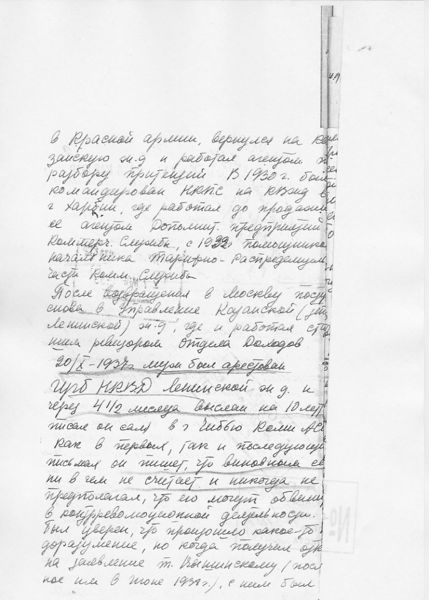 в Красной армии, вернулся на Ка
занскую ж.д и работал агентом п
разбору притензий В 1930 г. был
командирован НКПС на КВжд
г Харбин, где работал до продажи
ее агентом Дополнит. предприятий
Коммерч. Службы, с 1932 помощником
начальника Тарифно-Распределител
части Комм. Службы
После возвращения в Москву посту
снова в Управление Казанской (
Ленинской) ж.д, где и работал ст
шим ревизором отдела Доходов
20/X-1937г муж был арестован
НКВД Ленинской ж.д. и
через 4 1/2 месяца выслан на 10 лет
писал он сам) в г Чибью Коми АС
Как в первых, так и последующих
письмах он пишет, что виновным се
ни в чем не считает и никогда не
предполагал, что его могут обвини
в контрреволюционной деятельности.
Был уверен, что произошло какое-то
доразумение, но когда получил
на заявление т. Вышинскому (посл
ное им в июне 1939г.), с ним был